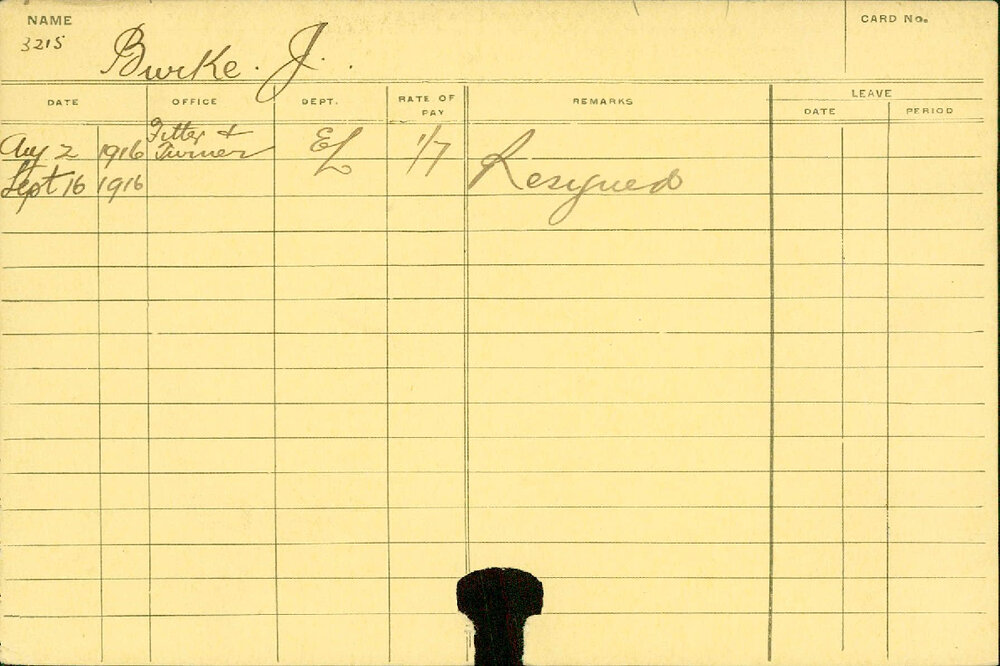 NAME
CARD No.
3215
Burke. J.
DATE OFFICE DEPT. RATE OF PAY REMARKS LEAVE
DATE PERIOD
Aug 2 1916 Fitter + Turner EL 1/7
Sept 16 1916 Resigned